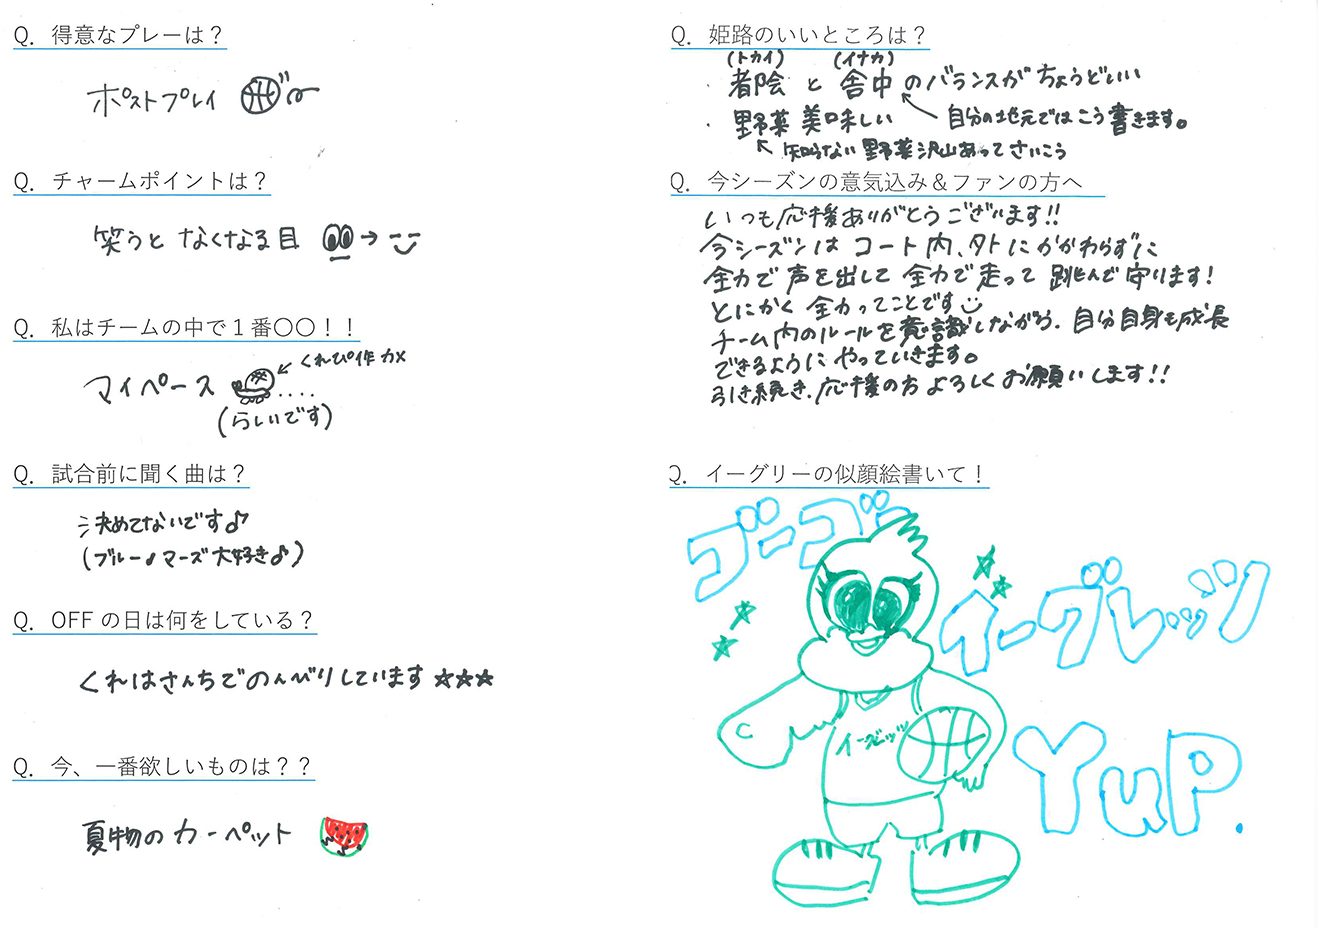 Q. 得意なプレーは？
ポストプレイ
Q. チャームポイントは？
笑うと なくなる目
Q. 私はチームの中で１番〇〇！！
マイペース
くれぴ作 カメ
(らしいです)
Q. 試合前に聞く曲は？
決めてないです♪
(ブルーノマーズ大好き♪)
Q. OFF の日は何をしている？
くれはさんちでのんびりしています ☆☆☆
Q. 今、一番欲しいものは？？
夏物のカーペット
Q. 姫路のいいところは？
(トカイ) (イナカ)
・都会 と 舎中 のバランスが ちょうどいい
自分の地元ではこう書きます。
・野菜 美味しい
知らない野菜沢山あってさいこう
Q. 今シーズンの意気込み＆ファンの方へ
いつも応援ありがとうございます!!
今シーズンは コート内、外にかかわらずに
全力で声を出して 全力で走って 跳んで守ります!
とにかく 全力ってことです
チーム内のルールを意識しながら、自分自身も成長
できるように やっていきます。
引き続き、応援の方 よろしく お願いします!!
Q. イーグリーの似顔絵書いて！
ゴーゴー
イーグレッツ
イーグレッツ
YuP.